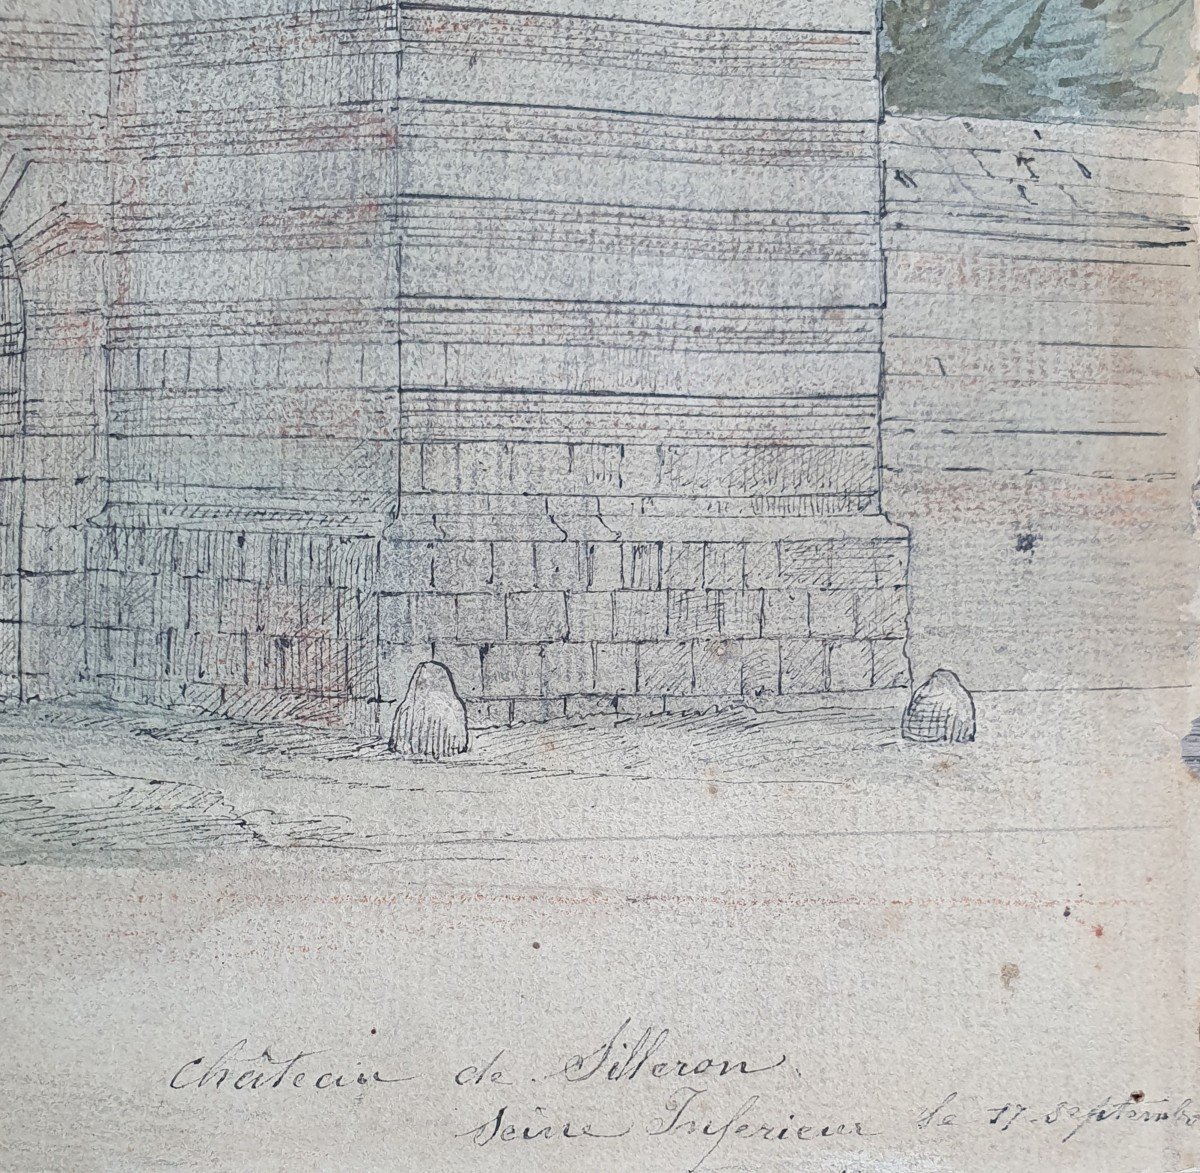 Château de Silleron
Seine Inferieur le 17 Septembre